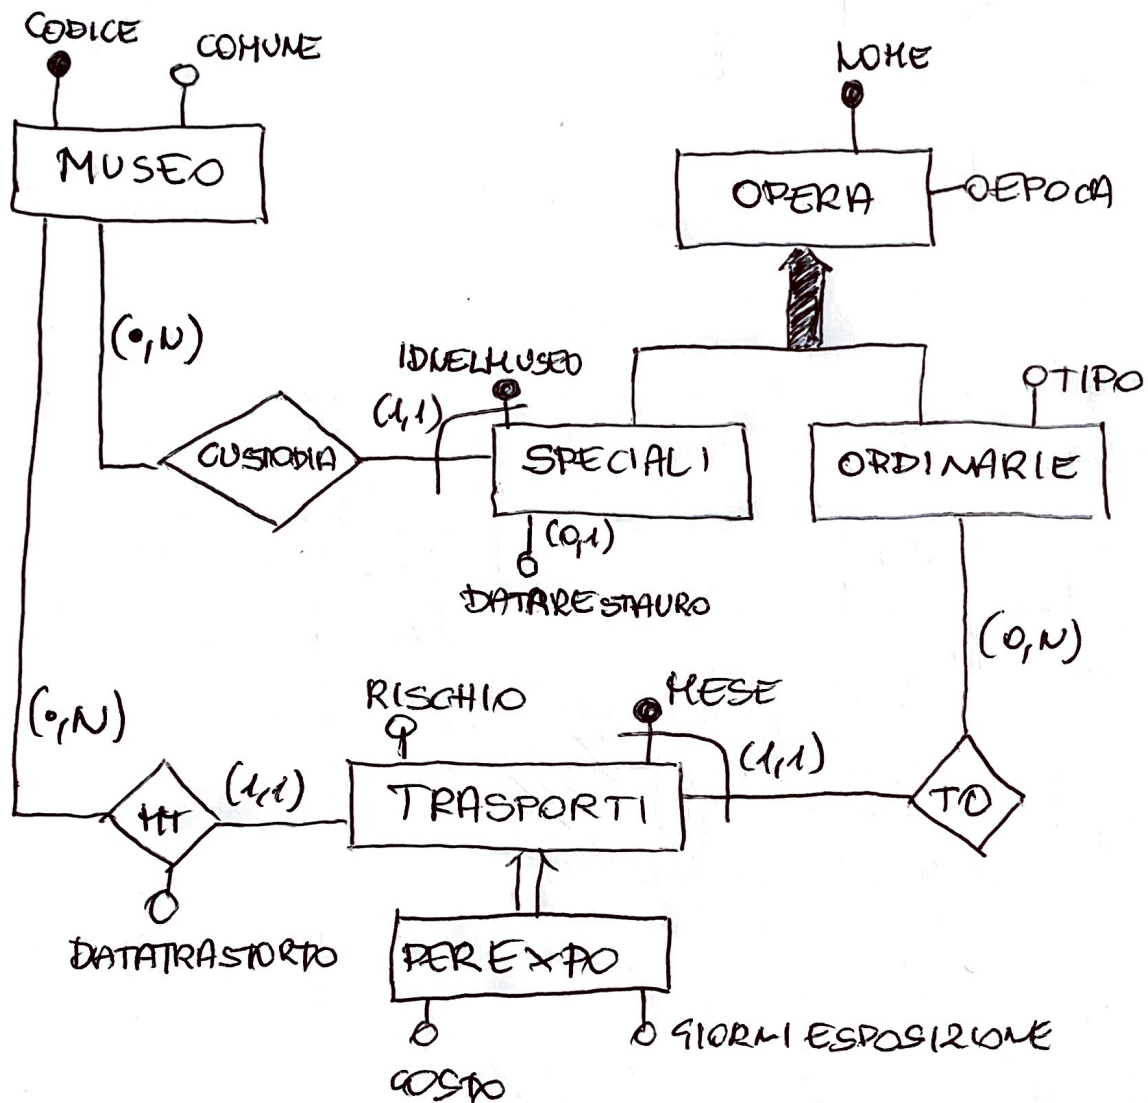 CODICE
COMUNE
NOME
MUSEO
OPERA
EPOCA
(0,N)
IDNELMUSEO
TIPO
(1,1)
CUSTODIA
SPECIALI
ORDINARIE
(0,1)
DATARESTAURO
(0,N)
(0,N)
RISCHIO
MESE
(1,1)
(1,1)
MT
TRASPORTI
TO
DATATRASPORTO
PER EXPO
GIORNI ESPOSIZIONE
COSTO